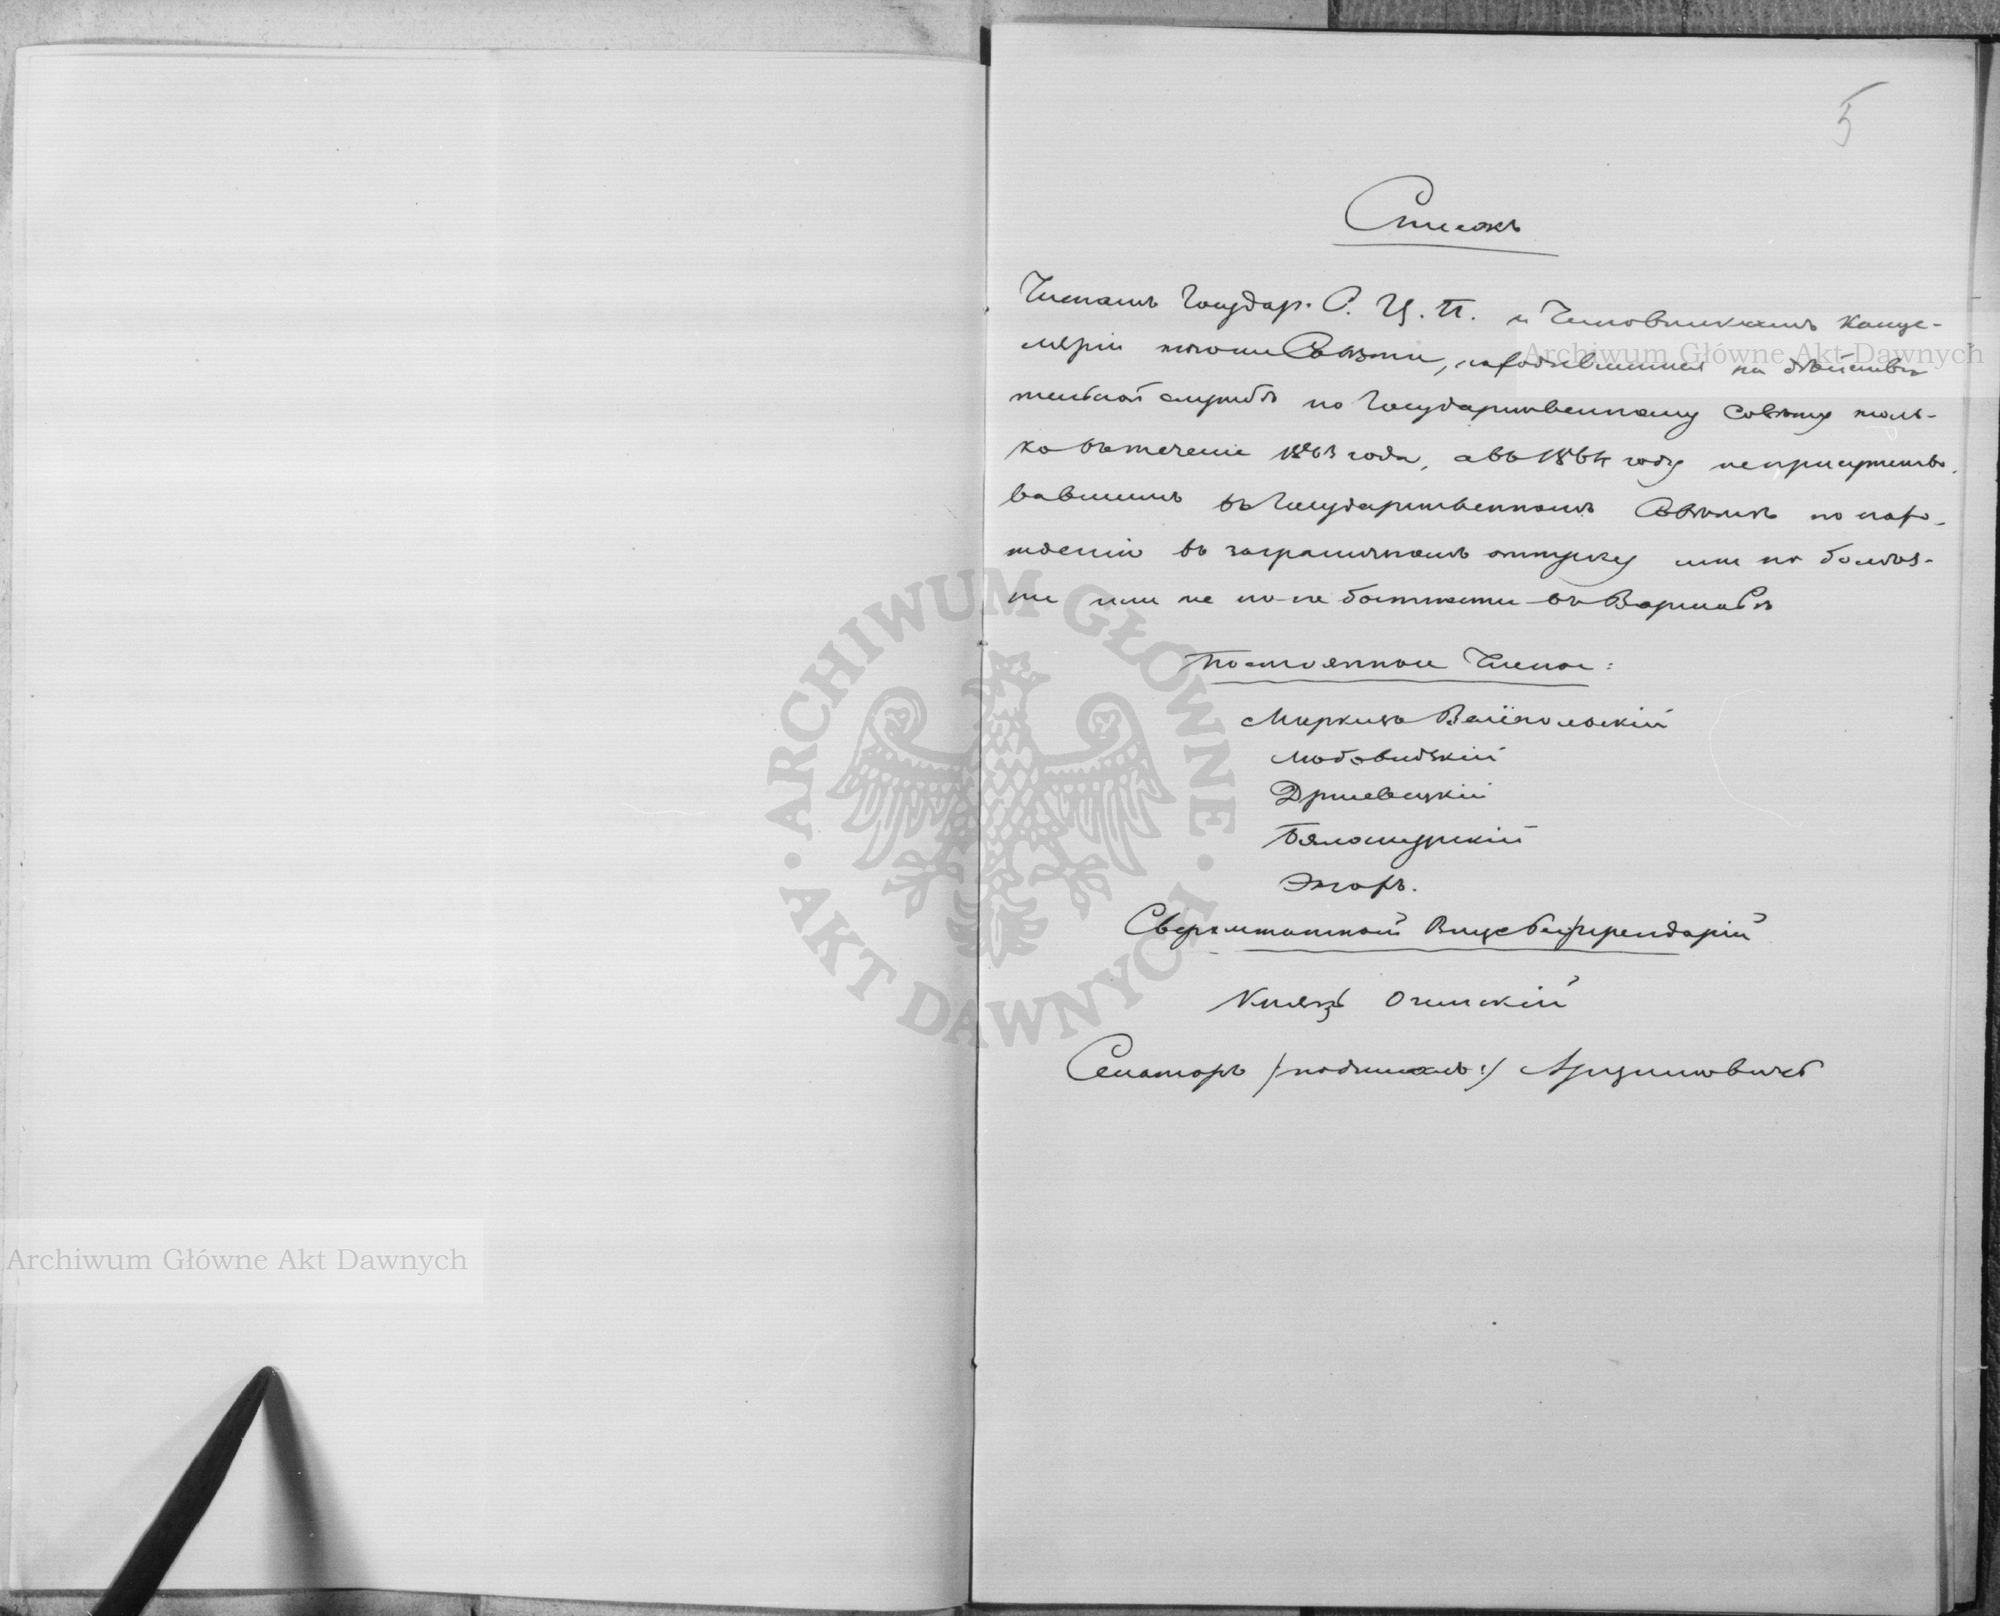 5
Списокъ
Членамъ Государ. С. Ц. П. и Чиновникамъ Канце-
ляріи онаго Совѣта, находившимся на дѣйстви
тельной службѣ по Государственному Совѣту толь-
ко въ теченіе 1863 года, а въ 1864 году неприсутство
вавшимъ въ Государственномъ Совѣтѣ по нахо-
жденію въ заграничномъ отпуску или по болѣз-
ни или же по не бытности въ Варшавѣ
Постоянные Члены:
Маркизъ Велёпольскій
Любовидзкій
Држевецкій
Бялоскурскій
Энохъ.
Сверхштатный ВицеРеферендарій
Князь Огинскій
Сенаторъ /подписалъ:/ Арцимовичъ
Archiwum Główne Akt Dawnych
ARCHIWUM GŁÓWNE · AKT DAWNYCH ·
Archiwum Główne Akt Dawnych